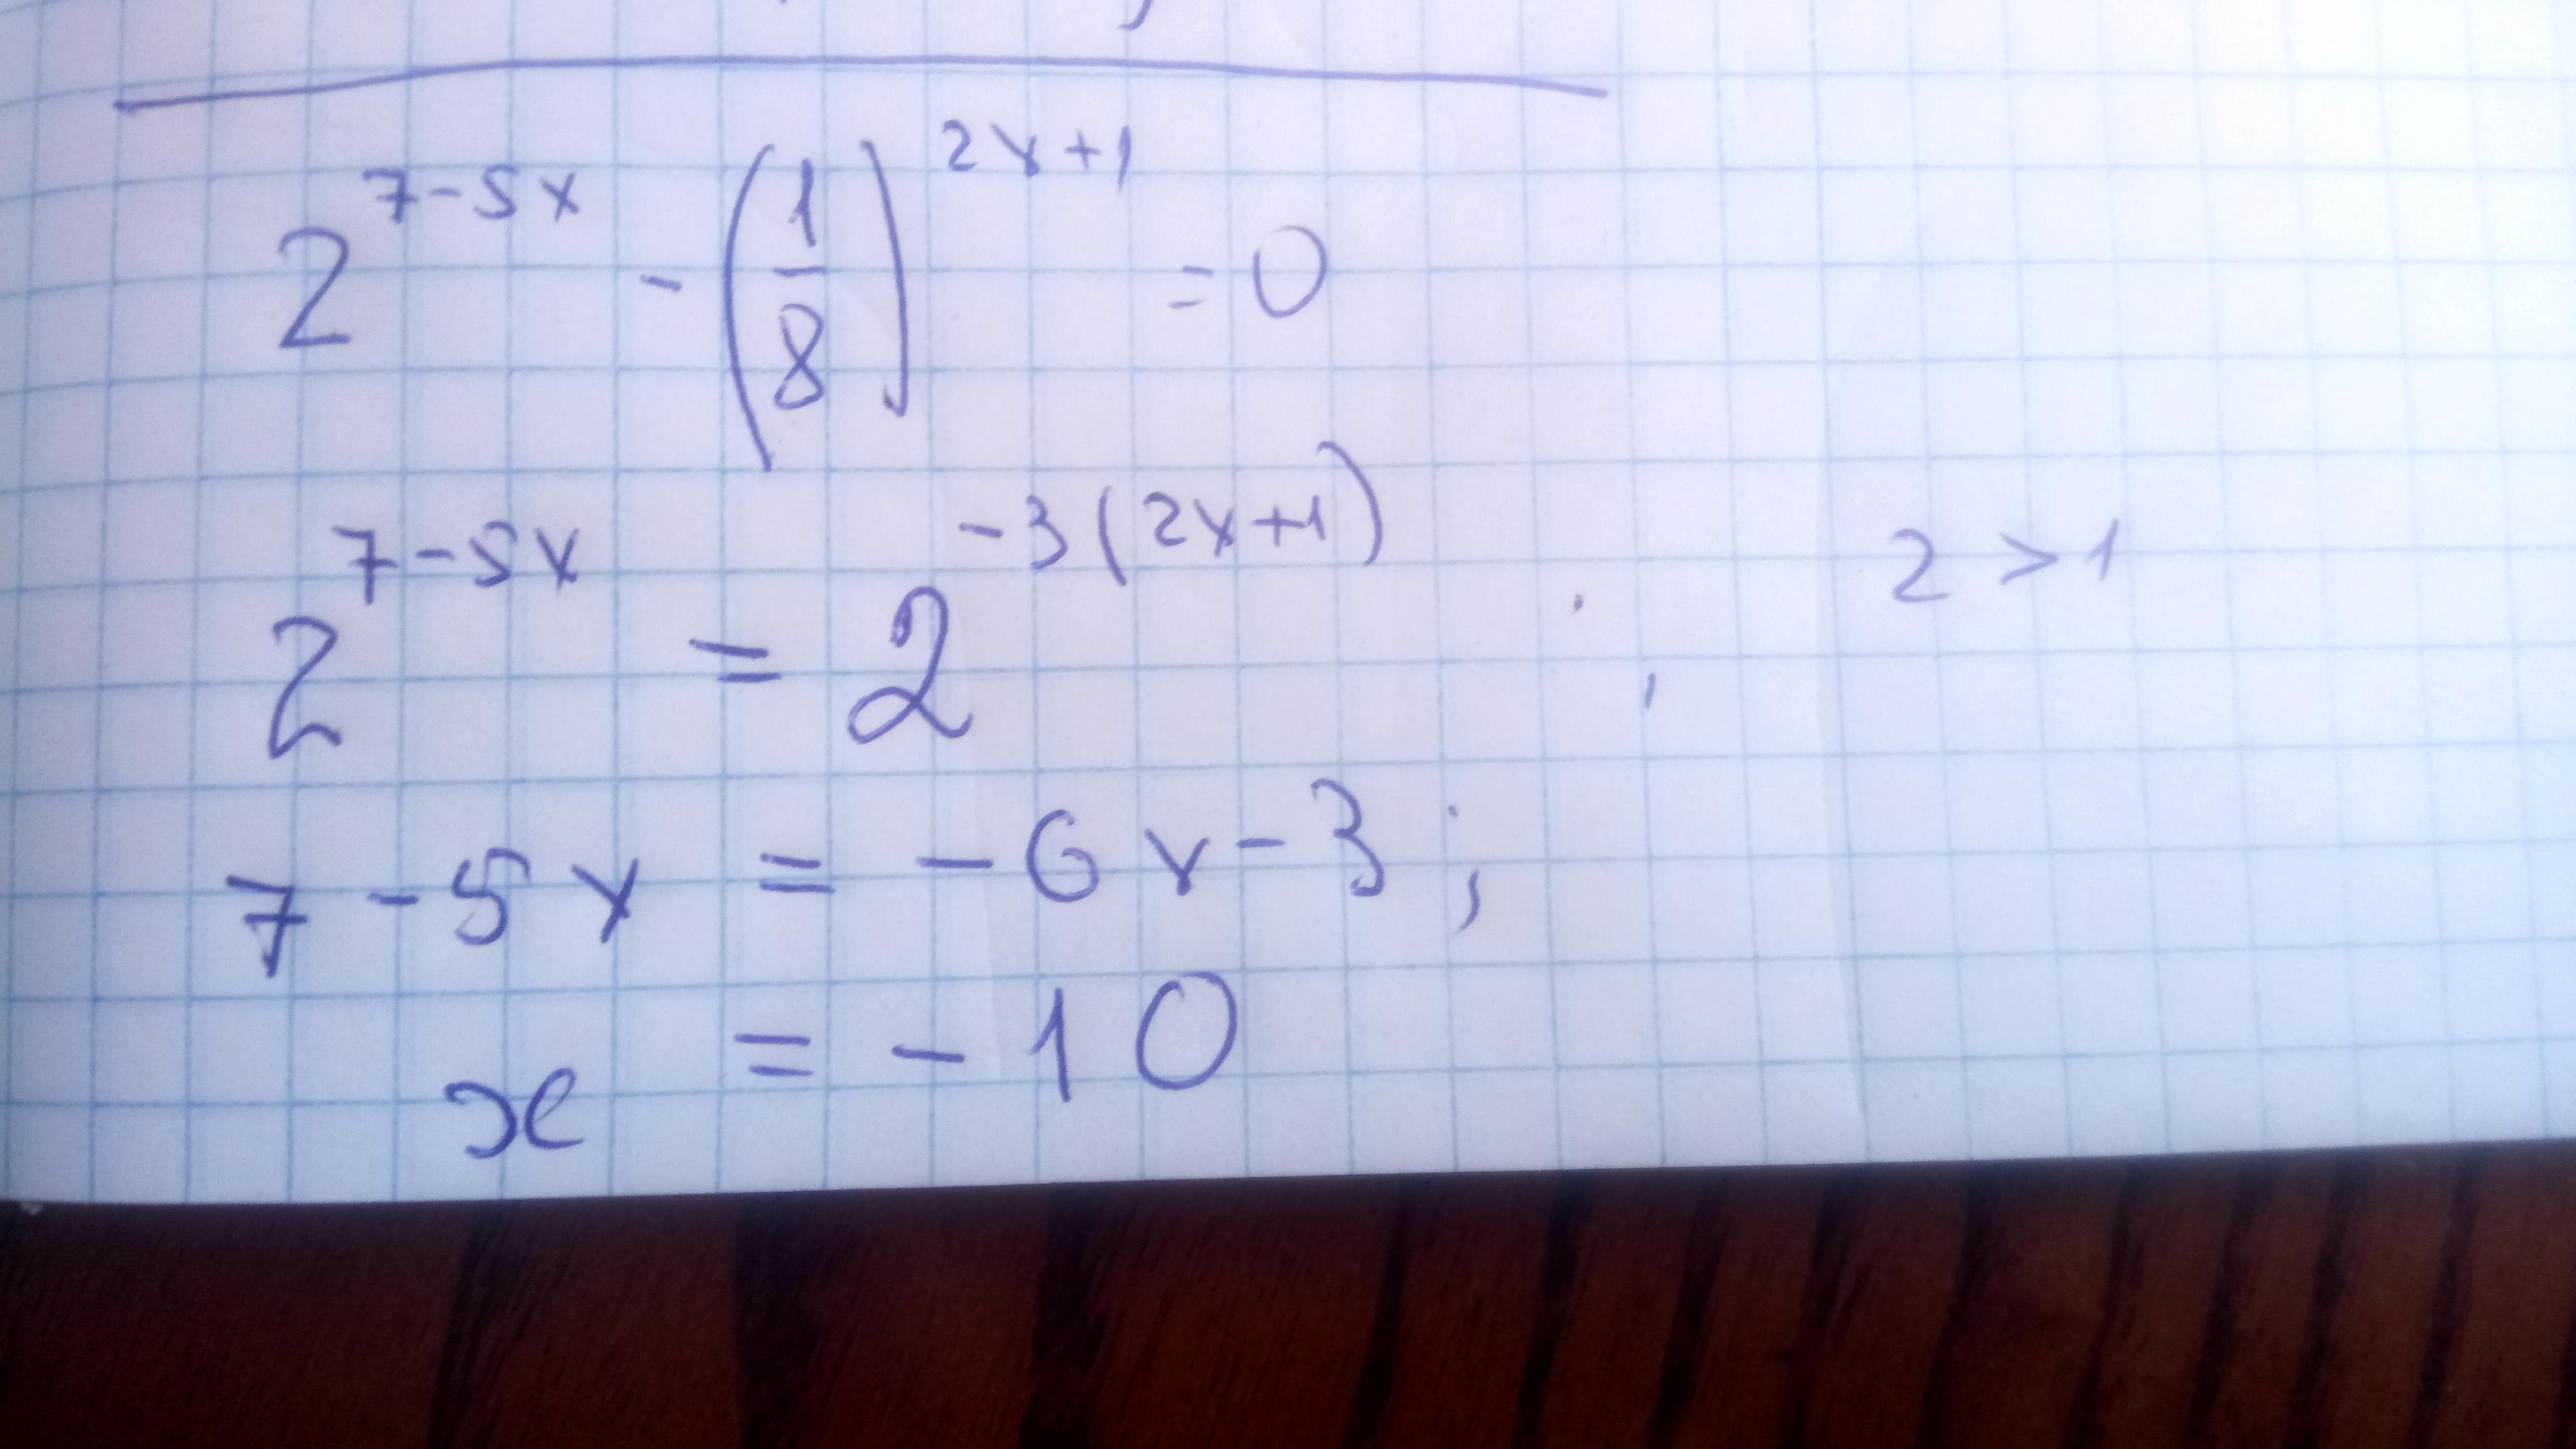 2^{7-5x} - (1/8)^{2x+1} = 0
2^{7-5x} = 2^{-3(2x+1)} ; 2 > 1
7 - 5x = - 6x - 3 ;
x = - 10